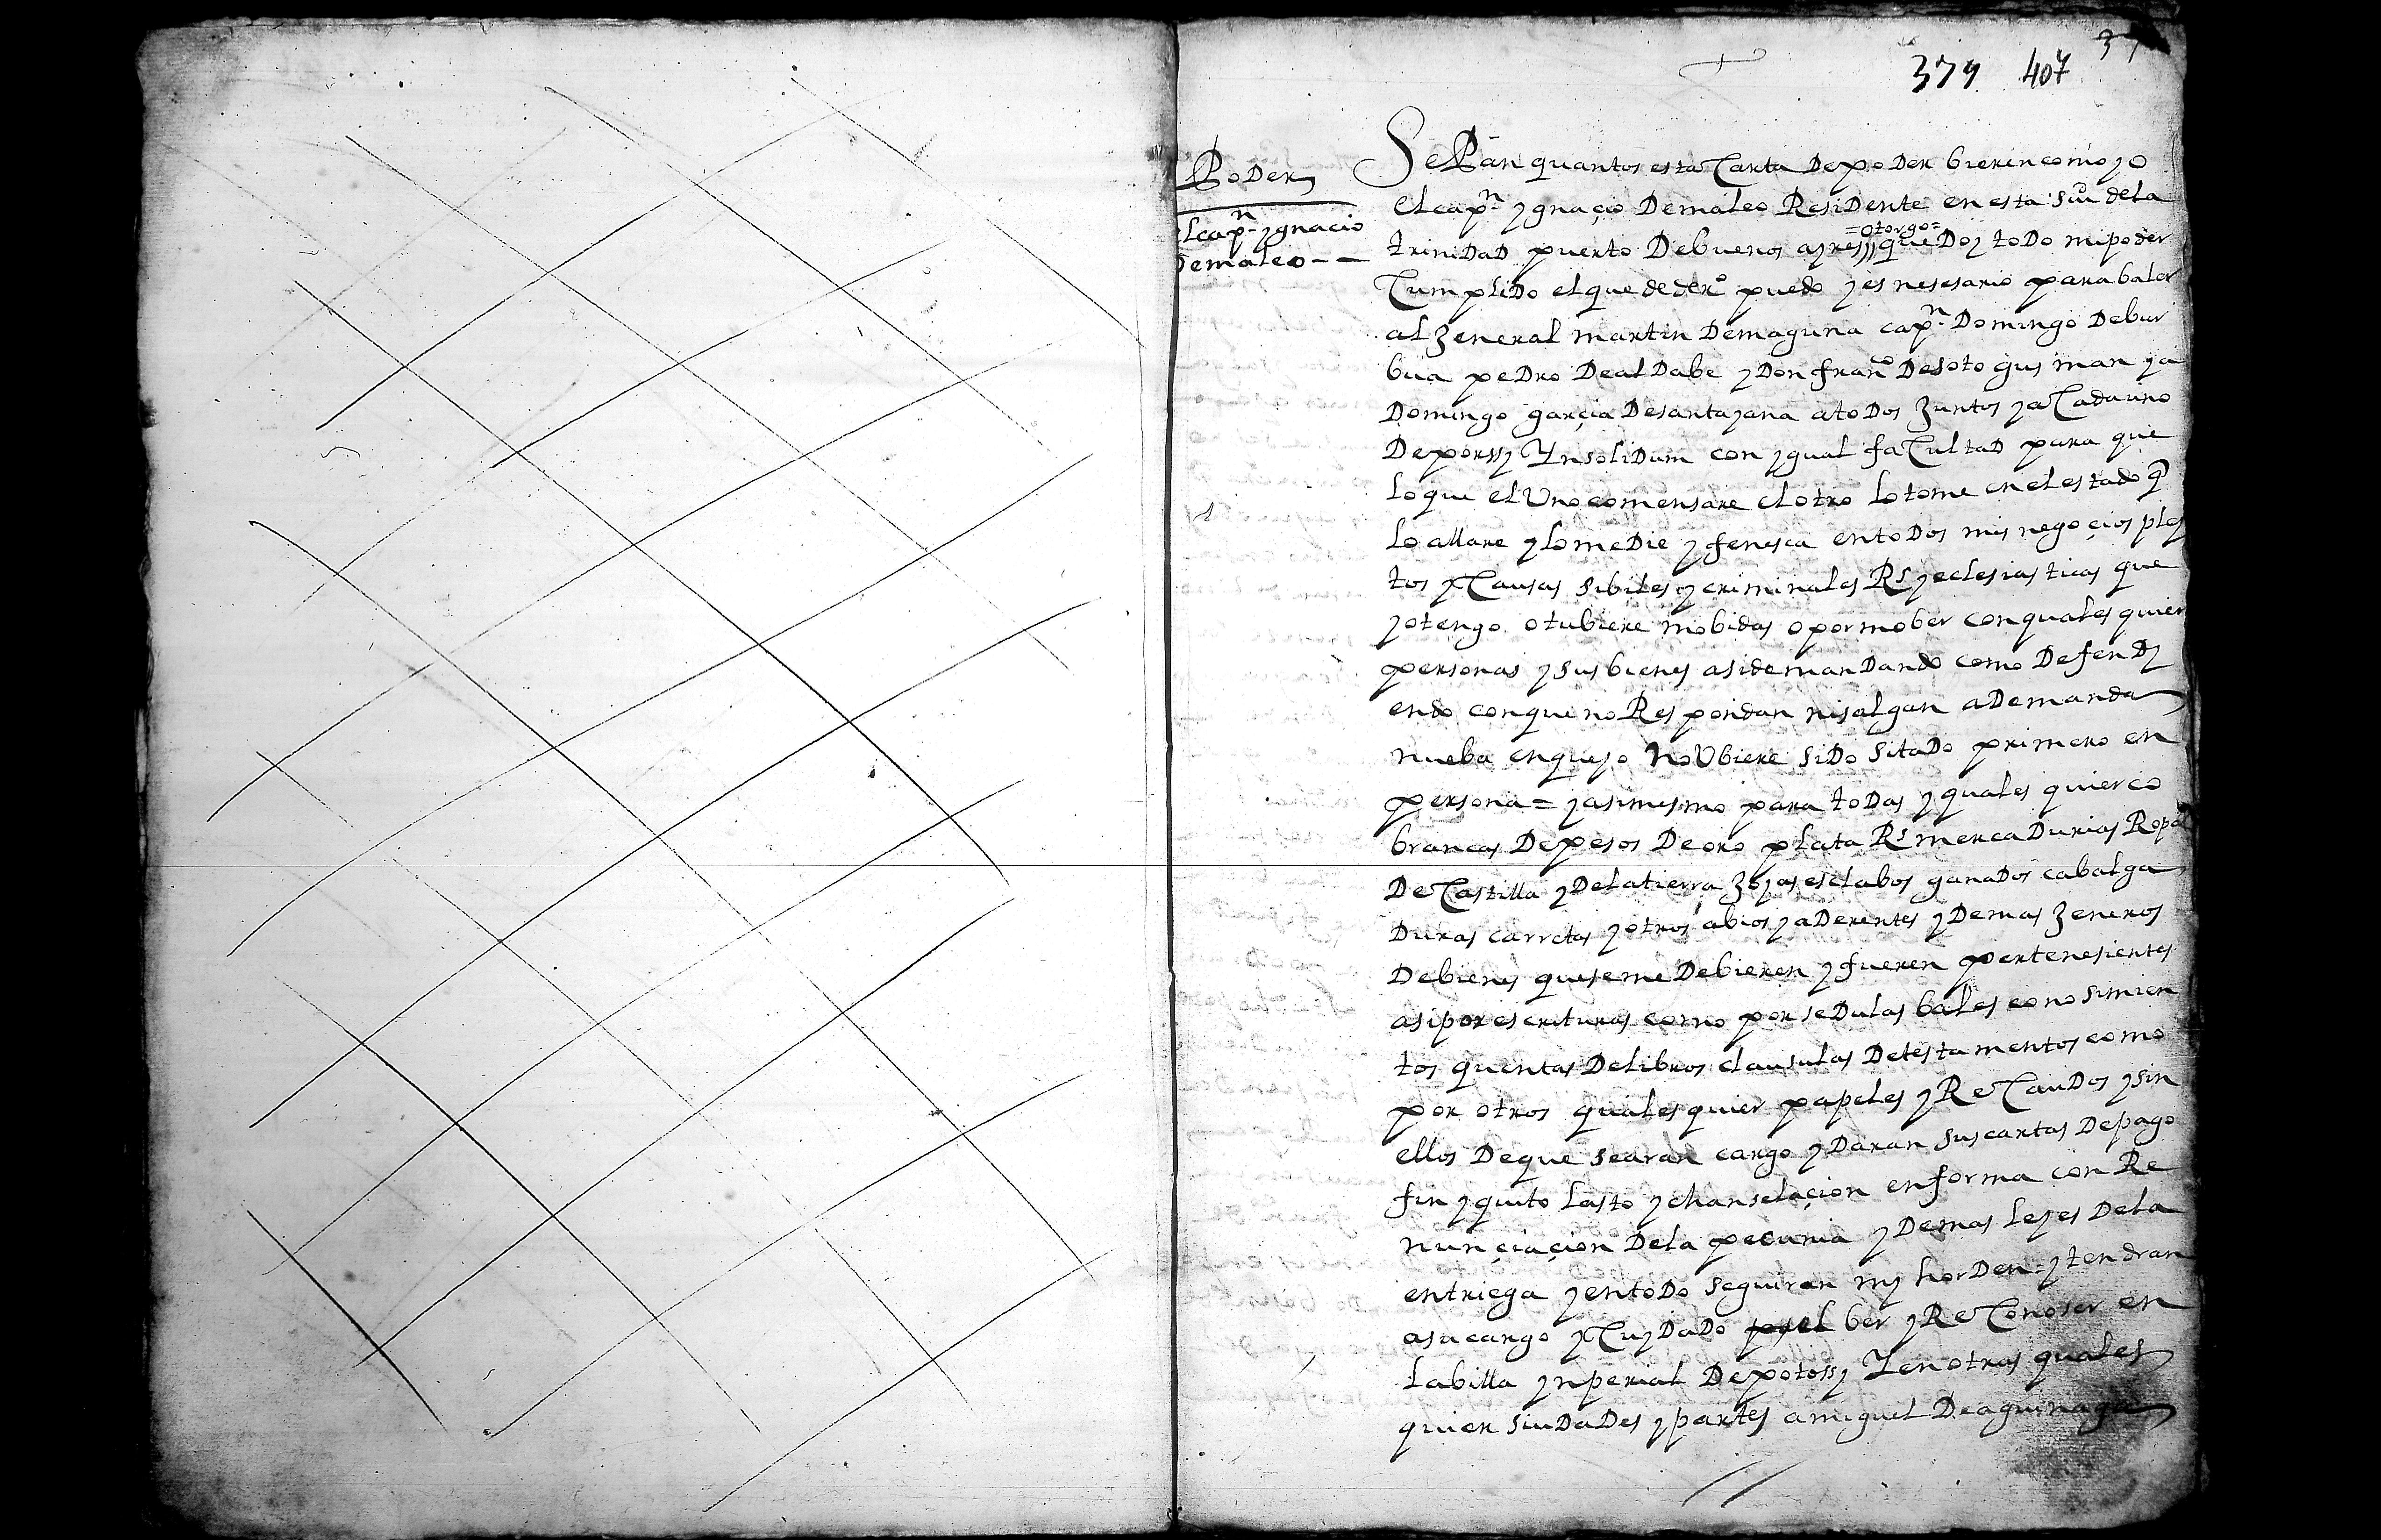 379 407 37
Poder
el capn ygnacio
de maleo
Sepan quantos esta Carta de poder bieren como yo
el capn ygnaçio de maleo Residente en esta siud de la
=otorgo=
trinidad puerto de buenos ayres que doy todo mi poder
Cumplido el que de dero puedo y es nesesario para baler
al Zeneral martin de maguna capn domingo de bur
bua pedro de aldabe y don franco de soto gusman y a
domingo garçia de santayana a todos Zuntos y a Cada uno
de por ssy Ynsolidum con ygual faCultad para que
lo que el Uno comensare el otro lo tome en el estado q
lo allare y lo medie y fenesca en todos mis negoçios pley
tos y Causas sibiles y criminales Rs y eclesiasticas que
yo tengo o tubiere mobidas o por mober con quales quier
personas y sus bienes asi demandando como defendy
endo con que no Respondan ni salgan a demanda
nueba en que yo no Ubiere sido sitado primero en
persona = y asimesmo para todas y quales quier co
brancas de pesos de oro plata Rs mercadurias Ropas
de Castilla y de la tierra Zoyas esclabos ganados cabalga
duras carretas y otros abios y aderentes y demas Zeneros
de bienes que se me debieren y fueren pertenesientes
asi por escrituras como por sedulas bales conosimien
tos quentas de libros clausulas de testamentos como
por otros quales quier papeles y ReCaudos y sin
ellos de que se aran cargo y daran sus cartas de pago
fin y quito lasto y chanselaçion en forma con Re
nunçiaçion de la pecunia y demas leyes de la
entriega y en todo seguiran my horden = y tendran
a su cargo y Cuydado ber y ReConoser en
la billa ynperial de potossy Y en otras quales
quier siudades y partes a miguel de aguinaga